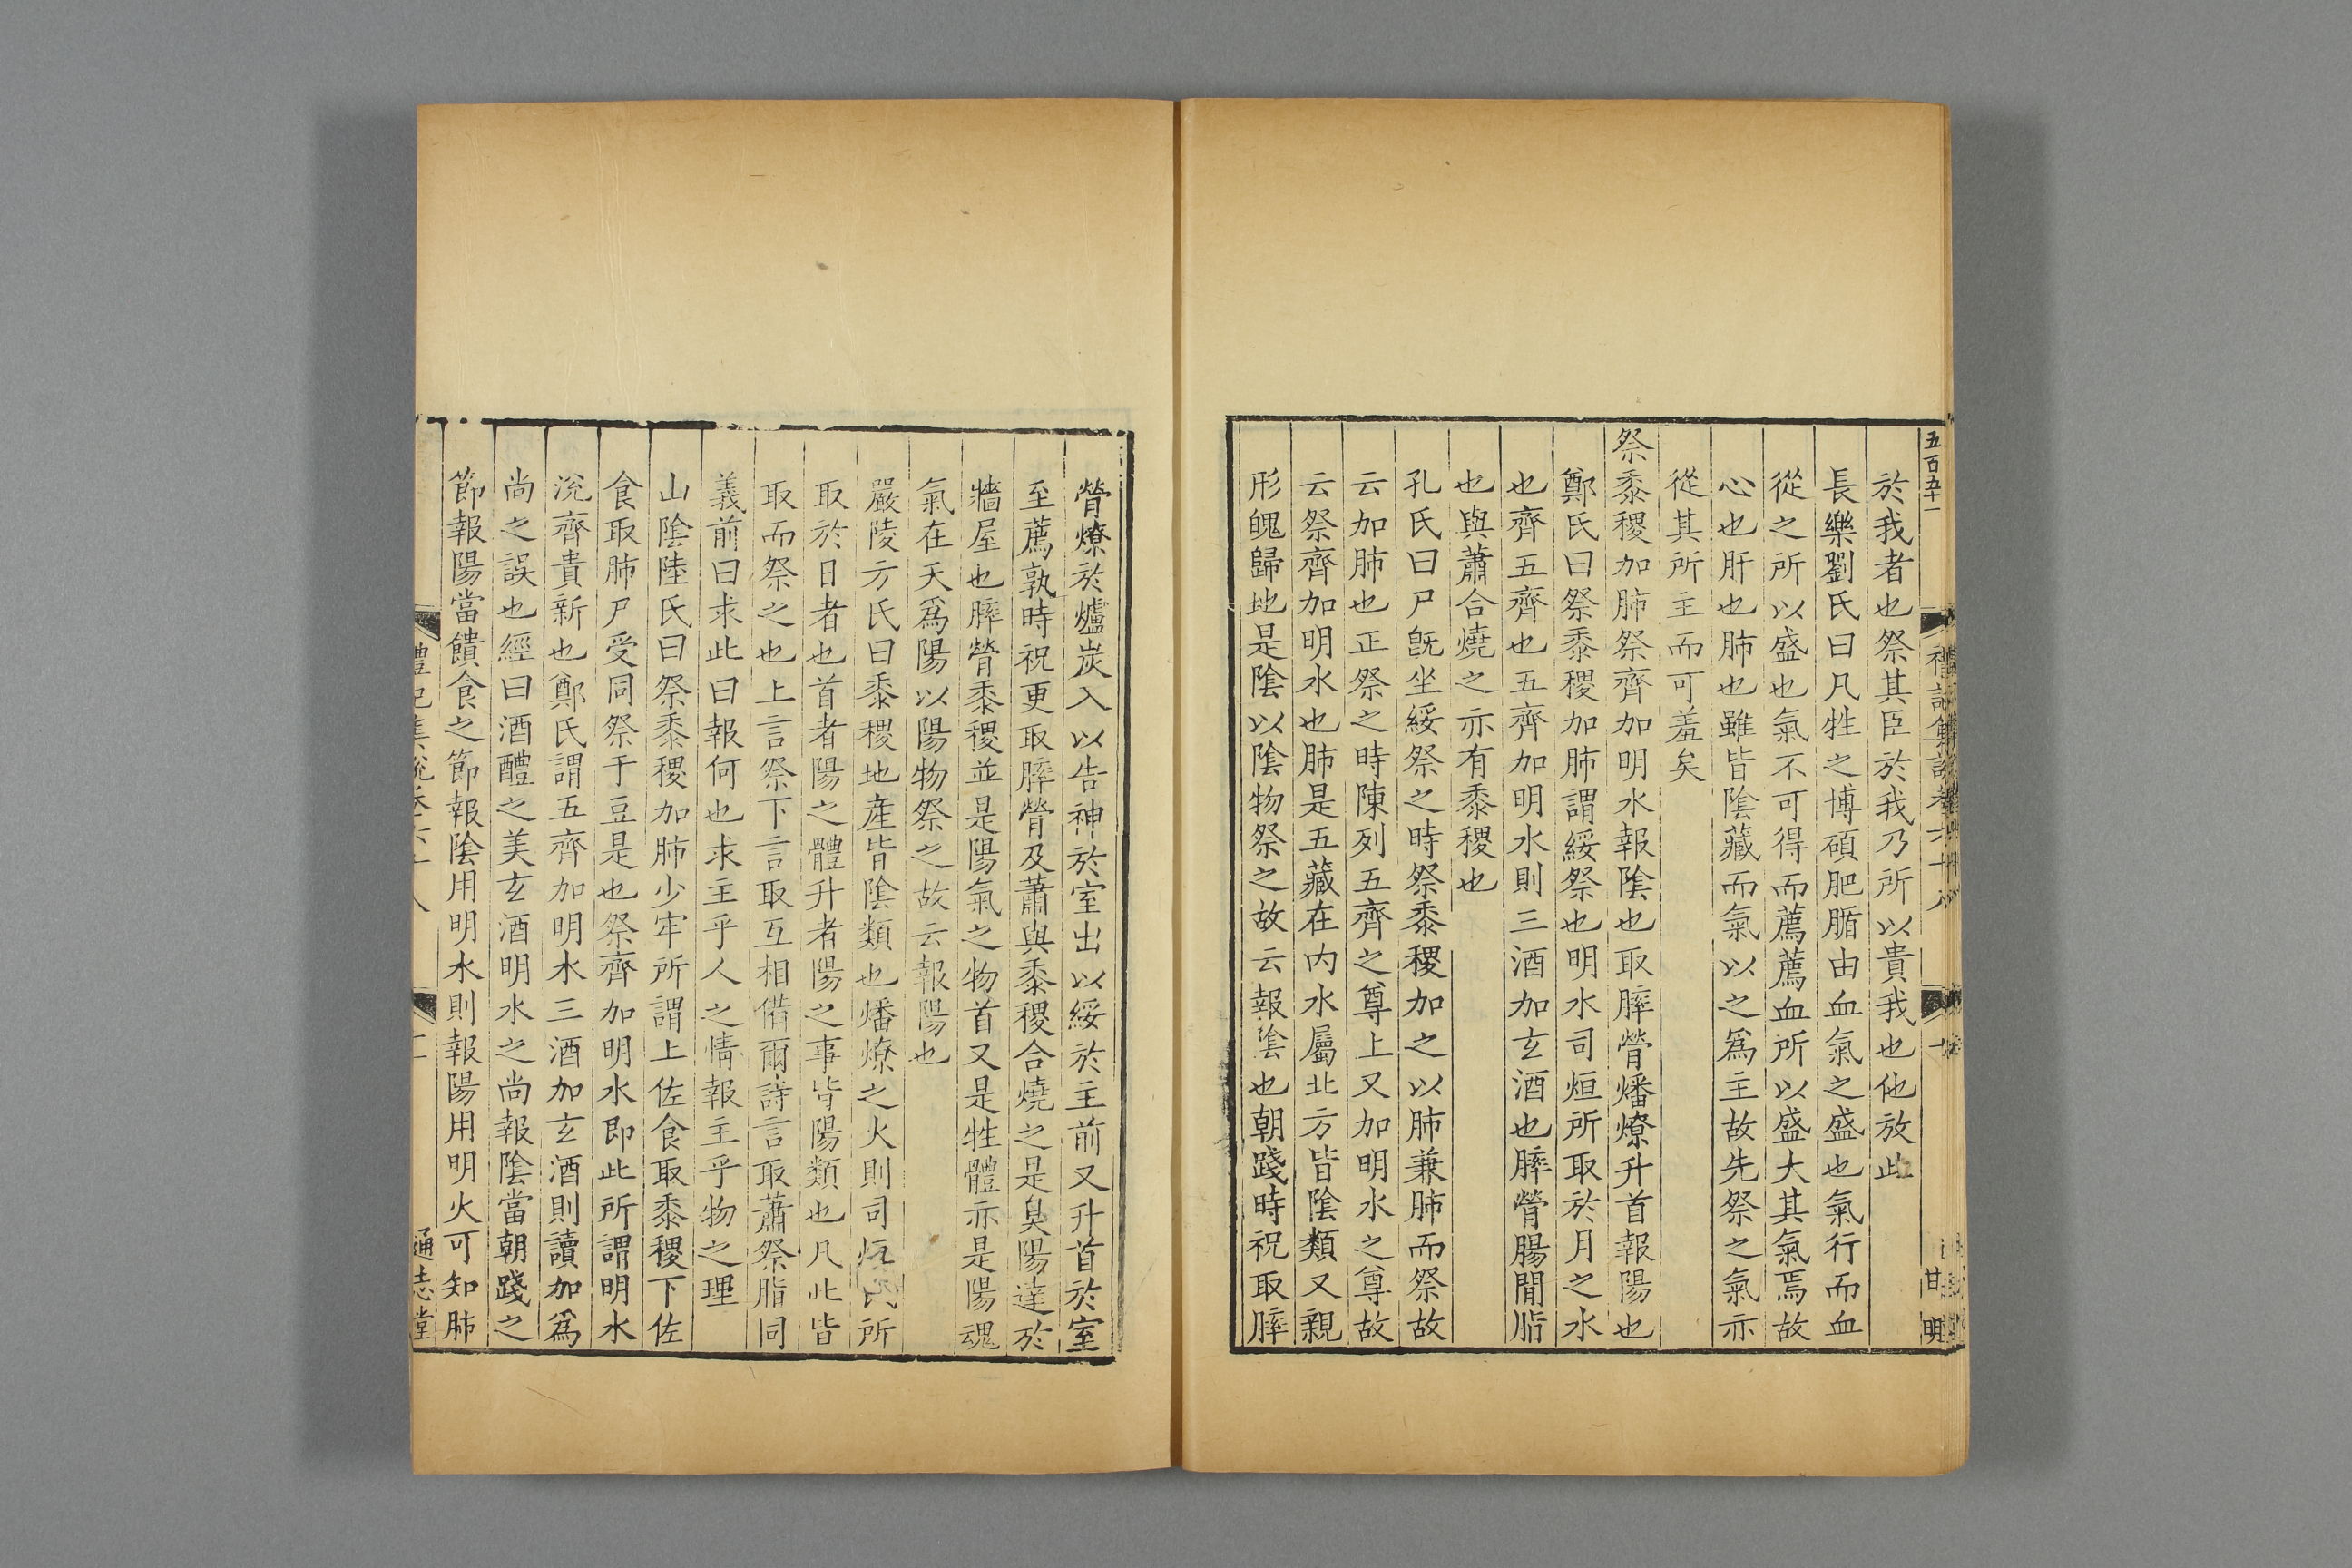 五百五十一
於我者也祭其臣於我乃所以貴我也他放此
長樂劉氏曰凡牲之博碩肥腯由血氣之盛也氣行而血
從之所以盛也氣不可得而薦薦血所以盛大其氣焉故
心也肝也肺也雖皆陰藏而氣以之爲主故先祭之氣亦
從其所主而可羞矣
祭黍稷加肺祭齊加明水報陰也取膟膋燔燎升首報陽也
鄭氏曰祭黍稷加肺謂綏祭也明水司烜所取於月之水
也齊五齊也五齊加明水則三酒加玄酒也膟膋腸間脂
也與蕭合燒之亦有黍稷也
孔氏曰尸旣坐綏祭之時祭黍稷加之以肺兼肺而祭故
云加肺也正祭之時陳列五齊之尊上又加明水之尊故
云祭齊加明水也肺是五藏在内水屬北方皆陰類又親
形魄歸地是陰以陰物祭之故云報陰也朝踐時祝取膟
甘明
膋燎於爐炭入以告神於室出以綏於主前又升首於室
至薦孰時祝更取膟膋及蕭與黍稷合燒之是臭陽達於
牆屋也膟膋黍稷並是陽氣之物首又是牲體亦是陽魂
氣在天爲陽以陽物祭之故云報陽也
嚴陵方氏曰黍稷地產皆陰類也燔燎之火則司烜氏所
取於日者也首者陽之體升者陽之事皆陽類也凡此皆
取而祭之也上言祭下言取互相備爾詩言取蕭祭脂同
義前曰求此曰報何也求主乎人之情報主乎物之理
山陰陸氏曰祭黍稷加肺少牢所謂上佐食取黍稷下佐
食取肺尸受同祭于豆是也祭齊加明水即此所謂明水
涗齊貴新也鄭氏謂五齊加明水三酒加玄酒則讀加爲
尚之誤也經曰酒醴之美玄酒明水之尚報陰當朝踐之
節報陽當饋食之節報陰用明水則報陽用明火可知肺
禮記集說卷六十八
二
通志堂